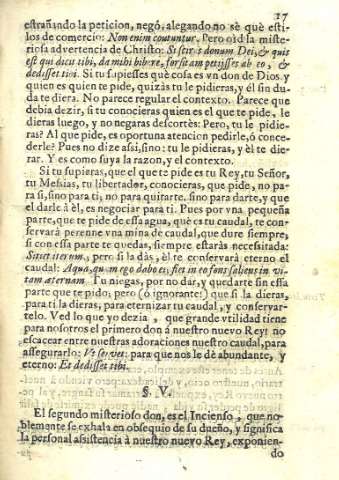 17
estrañando la peticion, negó, alegando no sè què esti-
los de comercio: Non enim coutuntur. Pero oìd la miste-
riosa advertencia de Christo: Si scires donum Dei, & quis
est qui dicit tibi, da mihi bibere, forsitam petijsses ab eo, &
dedisset tibi. Si tu supiesses què cosa es vn don de Dios, y
quien es quien te pide, quizàs tu le pidieras, y èl sin du-
da te diera. No parece regular el contexto. Parece que
debia dezir, si tu conocieras quien es el que te pide, le
dieras luego, y no negaras descortès: Pero, tu le pidie-
ras? Al que pide, es oportuna atencion pedirle, ó conce-
derle? Pues no dize assi, sino: tu le pidieras, y èl te die-
rar. Y es como suya la razon, y el contexto.
Si tu supieras, que el que te pide es tu Rey, tu Señor,
tu Messias, tu libertador, conocieras, que pide, no pa-
ra sì, sino para ti, no para quitarte, sino para darte, y que
el darle à èl, es negociar para tì. Pues por vna pequeña
parte, que te pide de essa agua, què es tu caudal, te con-
servarà perenne vna mina de caudal, que dure siempre,
si con essa parte te quedas, siempre estaràs necessitada:
Sitiet iterum, pero si la dàs, èl te conservarà eterno el
caudal: Aqua, quam ego dabo ei, fiet in eo fons saliens in vi-
tam æternam. Tu niegas, por no dar, y quedarte sin essa
parte que te pido; pero (ó ignorante!) que si la dieras,
para ti la dieras, para eternizar tu caudal, y conservar-
telo. Ved lo que yo dezia, que grande vtilidad tiene
para nosotros el primero don à nuestro nuevo Rey! no
escacear entre nuestras adoraciones nuestro caudal, para
assegurarlo: Vt servet: para que nos le dè abundante, y
eterno: Et dedisset tibi.
§. V.
El segundo misterioso don, es el Incienso, que no-
blemente se exhala en obsequio de su dueño, y significa
la personal assistencia à nuestro nuevo Rey, exponien-
do